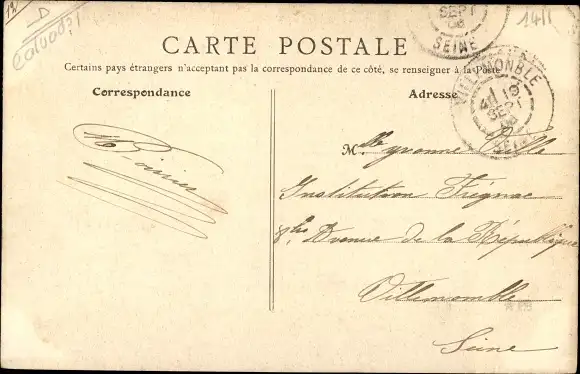 D
Calvados
1411
SEPT
08
SEINE
CARTE POSTALE
Certains pays étrangers n'acceptant pas la correspondance de ce côté, se renseigner à la Poste
Correspondance
Adresse
VILLEMOMBLE
19
SEPT
SEINE
Mlle Yvonne
Institution Frégnac
8bis Avenue de la République
Villemomble
Seine